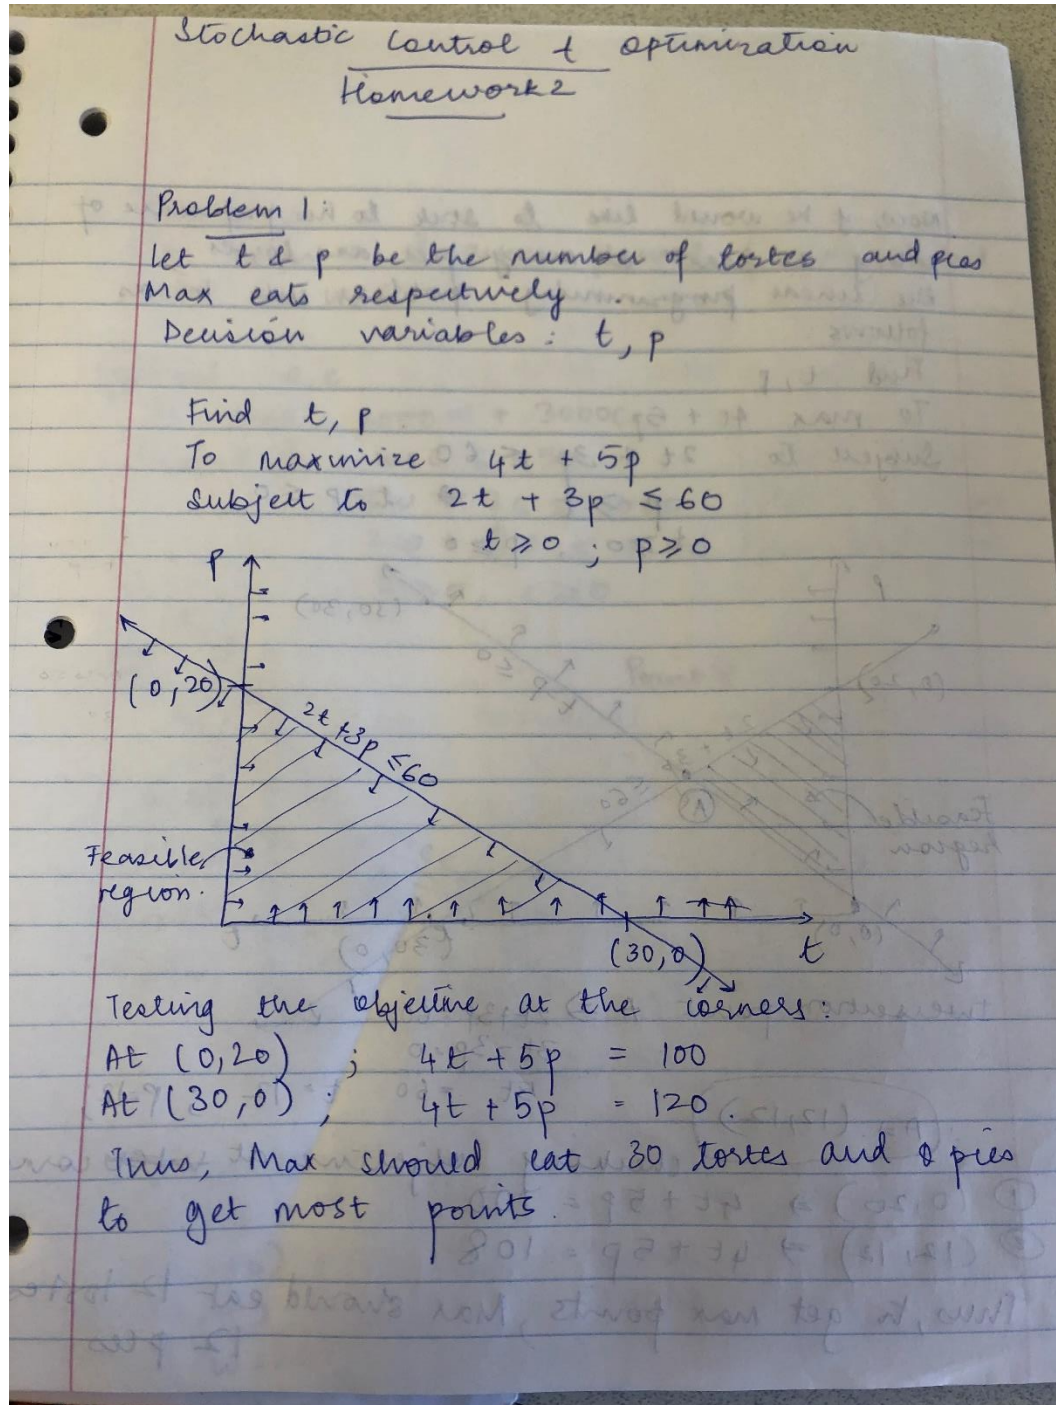 Stochastic Control & Optimization
Homework 2
Problem 1:
Let t & p be the number of tortes and pies
Max eats respectively.
Decision variables: t, p
Find t, p
To maximize 4t + 5p
Subject to 2t + 3p ≤ 60
t ≥ 0 ; p ≥ 0
p
(0, 20)
2t + 3p ≤ 60
Feasible
region.
(30, 0)
t
Testing the objective at the corners:
At (0, 20) ; 4t + 5p = 100
At (30, 0) ; 4t + 5p = 120.
Thus, Max should eat 30 tortes and 0 pies
to get most points.